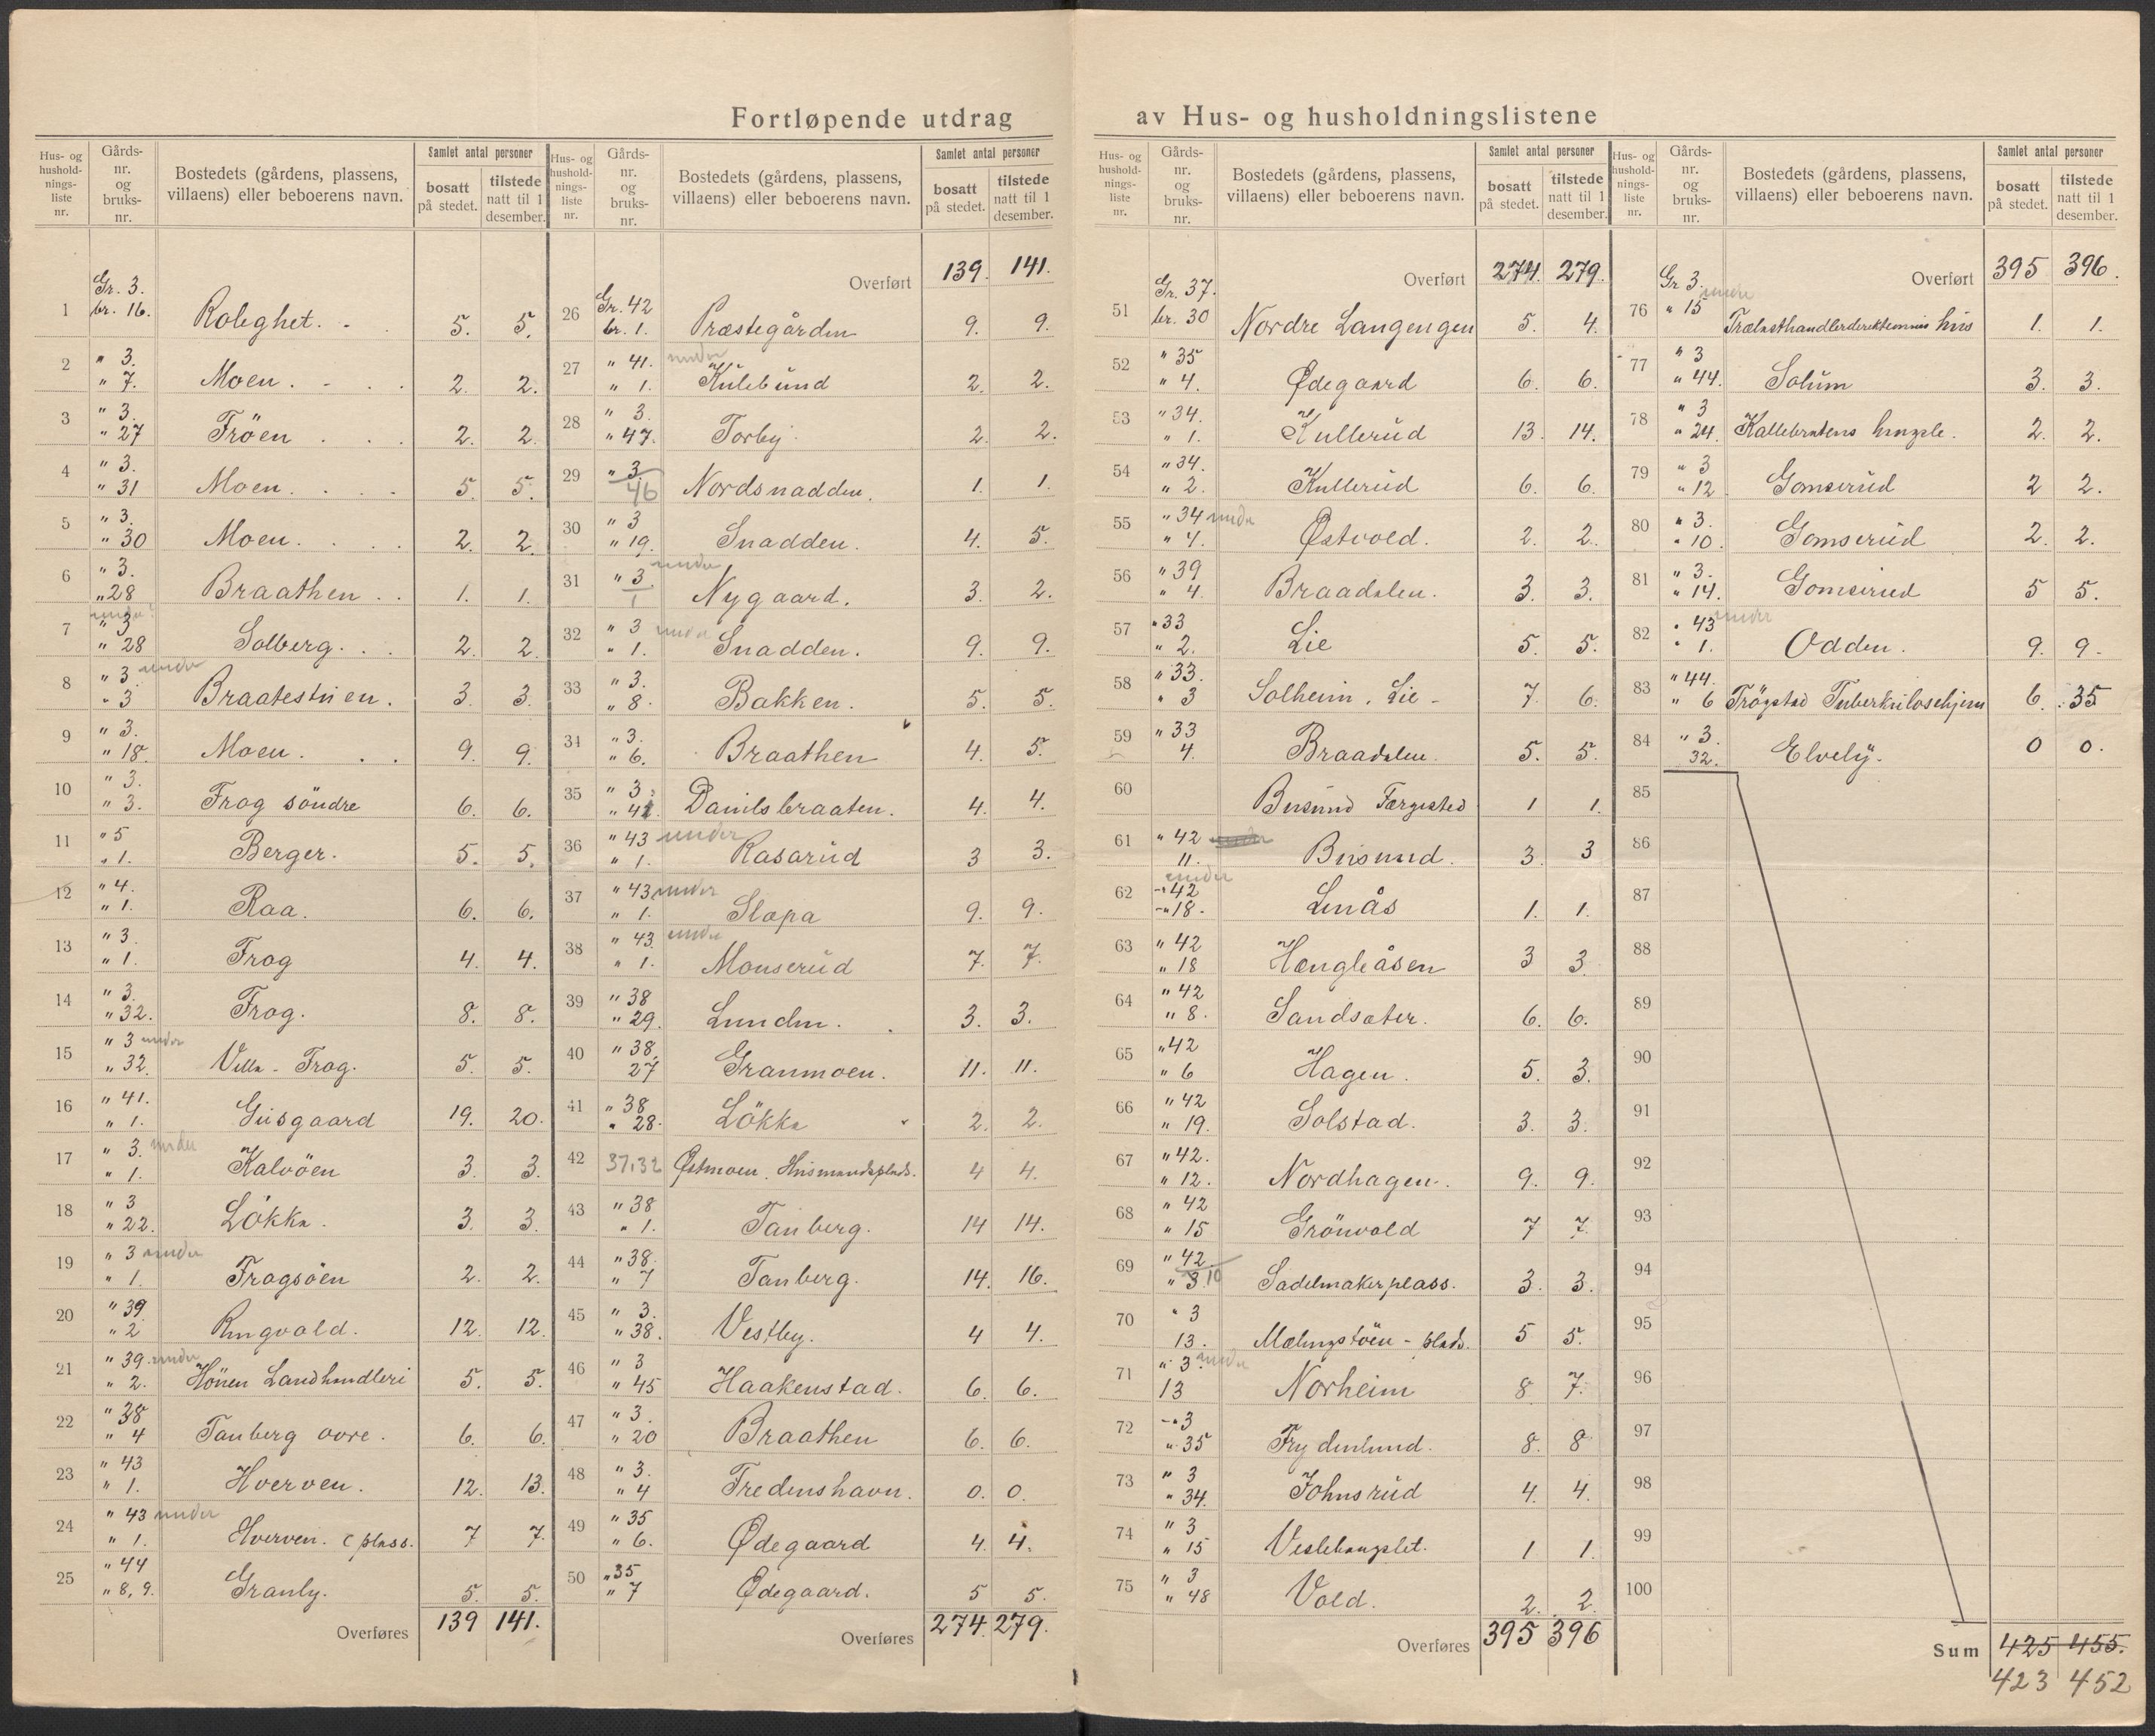 Fortløpende utdrag av Hus- og husholdningslistene
Hus- og husholdnings-liste nr. | Gårds-nr. og bruks-nr. | Bostedets (gårdens, plassens, villaens) eller beboerens navn. | Samlet antal personer: bosatt på stedet. | tilstede natt til 1 desember.
1 Gr. 3. br. 16. Roleghet. 5. 5.
2 " 3. " 7. Moen. 2. 2.
3 " 3. " 27 Fröen 2. 2.
4 " 3. " 31 Moen. 5. 5.
5 " 3. " 30 Moen. 2. 2.
6 " 3. " 28 Braathen 1. 1.
7 under " 3 " 28 Solberg. 2. 2.
8 " 3. under " 3 Braatestuen. 3. 3.
9 " 3. " 18. Moen. 9. 9.
10 " 3. " 3. Frog söndre 6. 6.
11 " 5 " 1. Berger. 5. 5.
12 " 4. " 1. Raa. 6. 6.
13 " 3. " 1. Frog 4. 4.
14 " 3. " 32. Frog. 8. 8.
15 " 3 under " 32. Villa - Frog. 5. 5.
16 " 41. " 1. Gusgaard 19. 20.
17 " 3. under " 1. Kalvöen 3. 3.
18 " 3 " 22. Lökka. 3. 3.
19 " 3 under " 1. Frogsöen 2. 2.
20 " 39. " 2 Ringvold. 12. 12.
21 " 39. under " 2. Hönen Landhandleri 5. 5.
22 " 38 " 4 Tanberg övre. 6. 6.
23 " 43 " 1. Hverven. 12. 13.
24 " 43 under " 1. Hverven. plass. 7 7.
25 " 44 " 8, 9. Granly. 5. 5.
Overføres 139 141.
Hus- og husholdnings-liste nr. | Gårds-nr. og bruks-nr. | Bostedets (gårdens, plassens, villaens) eller beboerens navn. | Samlet antal personer: bosatt på stedet. | tilstede natt til 1 desember.
Overført 139. 141.
26 Gr. 42 br. 1. Præstegården 9. 9.
27 " 41. under " 1. Kulebund 2. 2.
28 " 3. " 47. Torby 2. 2.
29 " 3. 46 Nordsnadden. 1. 1.
30 " 3 " 19. Snadden. 4. 5.
31 " 3 under 1 Nygaard. 3. 2.
32 " 3 under " 1. Snadden. 9. 9.
33 " 3. " 8. Bakken. 5. 5.
34 " 3. " 6. Braathen 4. 5.
35 " 3. " 41. Danilsbraaten. 4. 4.
36 " 43 under " 1. Rasarud 3 3.
37 " 43 under " 1. Slopa 9. 9.
38 " 43. under " 1. Monserud 7. 7.
39 " 38 " 29. Lunden. 3. 3.
40 " 38. 27 Granmoen. 11. 11.
41 " 38 " 28. Lökka 2. 2.
42 37,32 Østmoen. Husmandsplads. 4 4.
43 " 38 " 1. Tanberg. 14 14.
44 " 38. " 7 Tanberg. 14. 16.
45 " 3. " 38. Vestby. 4 4.
46 " 3 " 45 Haakenstad. 6. 6.
47 " 3. " 20 Braathen 6. 6.
48 " 3. " 4 Fredenshavn. 0. 0.
49 " 35 " 6. Ødegaard 4. 4.
50 " 35 " 7 Ødegaard. 5 5.
Overføres 274. 279.
Hus- og husholdnings-liste nr. | Gårds-nr. og bruks-nr. | Bostedets (gårdens, plassens, villaens) eller beboerens navn. | Samlet antal personer: bosatt på stedet. | tilstede natt til 1 desember.
Overført 274. 279.
51 Gr. 37. br. 30 Nordre Langengen 5. 4.
52 " 35 " 4. Ødegaard 6. 6.
53 " 34. " 1. Kullerud 13. 14.
54 " 34. " 2. Kullerud 6. 6.
55 " 34 under " 4. Østvold. 2. 2.
56 " 39 " 4. Braadalen. 3. 3.
57 " 33 " 2. Lie 5. 5.
58 " 33. " 3 Solheim, Lie - 7 6.
59 " 33 4. Braadalen. 5. 5.
60 Busund Færgested 1 1.
61 " 42 11. Busund. 3. 3
62 under " 42 " 18. Lenås 1. 1.
63 " 42 " 18 Hængleåsen 3 3.
64 " 42 " 8. Sandsæter. 6. 6.
65 " 42 " 6 Hagen. 5. 3.
66 " 42 " 19. Solstad. 3. 3.
67 " 42. " 12. Nordhagen. 9. 9.
68 " 42 " 15 Grönvold 7 7.
69 " 42 " 3 10 Sadelmakerplass. 3. 3.
70 " 3 13. Mælingstöen - plads. 5 5.
71 " 3. under 13 Norheim 8 7.
72 " 3 " 35 Frydenlund. 8. 8
73 " 3 " 34. Johnsrud 4. 4.
74 " 3 " 15 Veslehengslet. 1 1.
75 " 3 " 48 Vold. 2. 2.
Overføres 395 396
Hus- og husholdnings-liste nr. | Gårds-nr. og bruks-nr. | Bostedets (gårdens, plassens, villaens) eller beboerens navn. | Samlet antal personer: bosatt på stedet. | tilstede natt til 1 desember.
Overført 395 396.
76 Gr 3. under " 15 hus 1. 1.
77 " 3 " 44. Solum 3. 3.
78 " 3 " 24. Kallebratens 2. 2.
79 " 3 " 12. Gomserud 2 2.
80 " 3. " 10. Gomserud 2. 2.
81 " 3. " 14. Gomserud 5 5.
82 " 43 under " 1. Odden. 9. 9.
83 " 44. " 6 Trögstad Tuberkulosehjem 6. 35
84 " 3. 32. Elvely. 0 0.
85
86
87
88
89
90
91
92
93
94
95
96
97
98
99
100
Sum 425 455.
423 452